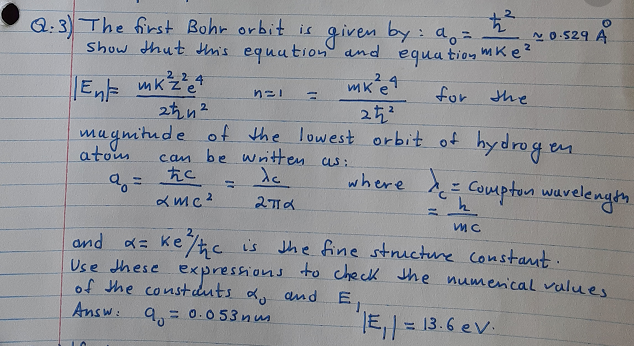 Q:3) The first Bohr orbit is given by: a₀ = ħ²/mKe² ≈ 0.529 Å
show that this equation and equation
|Eₙ| = mk²z²e⁴/2ħn² n=1 = mk²e⁴/2ħ² for the
magnitude of the lowest orbit of hydrogen
atom can be written as:
a₀ = ħc/αmc² = λc/2πα where λc = Compton wavelength
= h/mc
and α = ke²/ħc is the fine structure constant.
Use these expressions to check the numerical values
of the constants α₀ and E₁
Answ: a₀ = 0.053nm |E₁| = 13.6 eV.